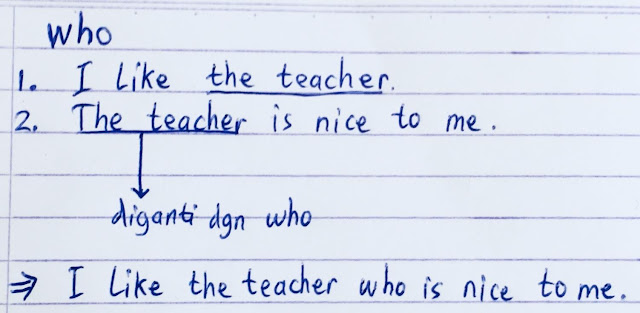 who
1. I like the teacher.
2. The teacher is nice to me.
diganti dgn who
⇒ I like the teacher who is nice to me.